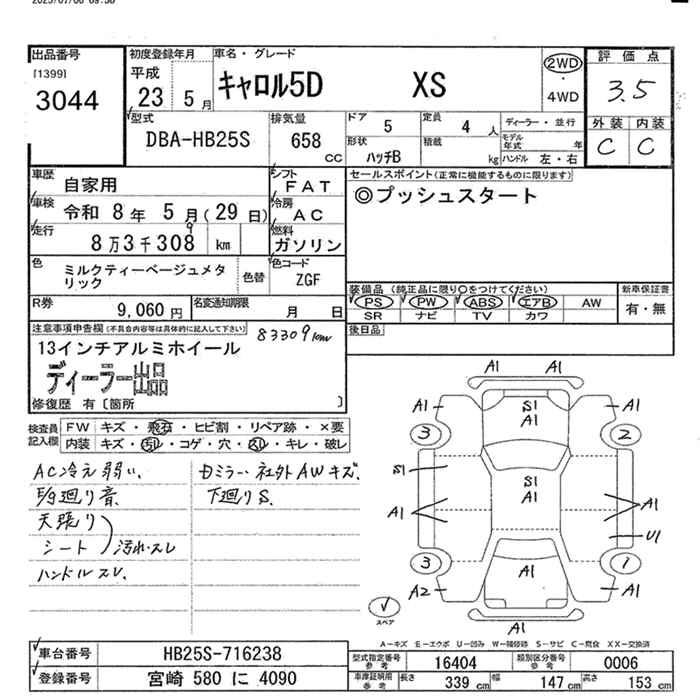 2025/07/08 09:58
出品番号
[1399]
3044
初度登録年月
平成
23 5月
車名・グレード
キャロル5D XS
2WD
・
4WD
評価点
3.5
外装 内装
C C
型式
DBA-HB25S
排気量
658 CC
ドア 5
形状 ハッチB
定員 4 人
積載 kg
ディーラー・並行
モデル年式 年
ハンドル 左・右
車歴 自家用
車検 令和 8年 5月(29日)
走行 8万3千308 km
9
シフト FAT
冷房 AC
燃料 ガソリン
セールスポイント(正常に機能するものに限ります)
◎プッシュスタート
色 ミルクティーベージュメタリック
色替
色コード ZGF
R券 9,060円
名変通知期限 月 日
装備品 (純正品に限り○をつけてください)
PS PW ABS エアB AW
SR ナビ TV カワ
新車保証書
有・無
後日品
注意事項申告欄(不具合内容等は具体的に記入して下さい)
83309km
13インチアルミホイール
ディーラー出品
修復歴 有〔箇所 〕
検査員記入欄
FW キズ・飛石・ヒビ割・リペア跡・×要
内装 キズ・汚レ・コゲ・穴・スレ・キレ・破レ
AC冷え弱い、 Dミラー、社外AWキズ、
廻り音、 下廻りS.
天張り
シート 汚れ・スレ
ハンドルスレ、
A1 A1
A1 S1 A1 A1
3 2
S1 S1 A1
A1 A1
U1
3 1
A2 A1 A1
A1
スペア
A－キズ E－エクボ U－凹み W－補修跡 S－サビ C－腐食 XX－交換済
車台番号 HB25S-716238
登録番号 宮崎 580 に 4090
型式指定番号 参考 16404
類別区分番号 参考 0006
車庫証明用 参考 長さ 339cm 幅 147cm 高さ 153cm